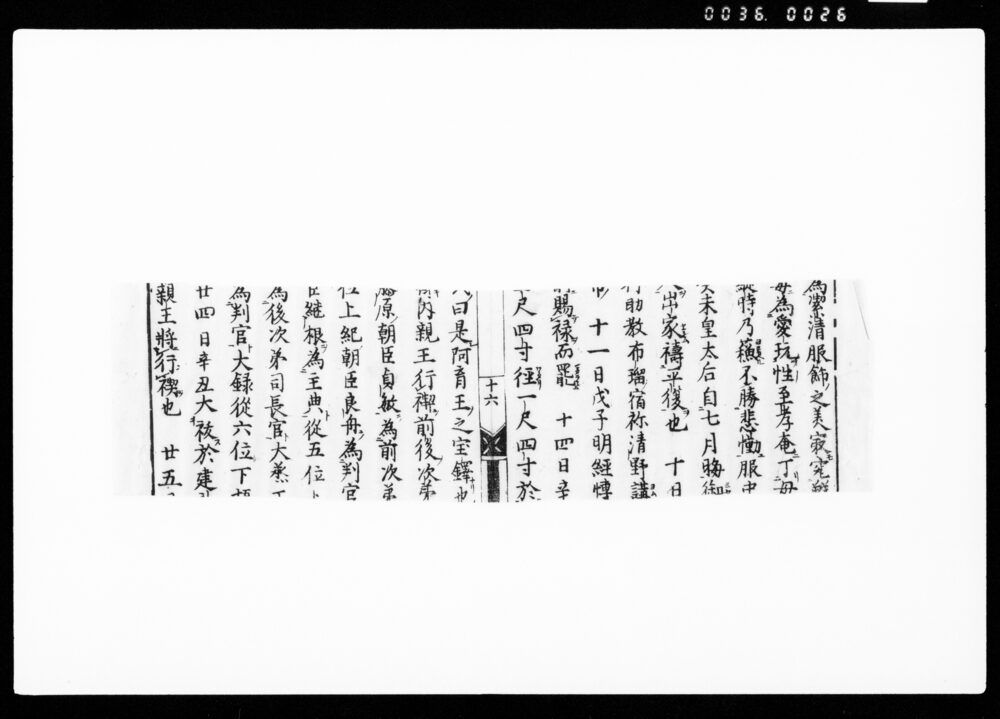 0036. 0026
為潔清服飾之美寂寞
母為愛玩性至孝庵丁母
時乃䕺不勝悲慟服中
未皇太后自七月晦御
出家禱平復也 十日
助教布瑠宿祢清野講
十一日戊子明經博
賜禄而罷 十四日辛
尺四寸徑一尺四寸於
十六
曰是阿育王之宝鐸也
内親王行禊前後次第
藤原朝臣貞敏為前次第
位上紀朝臣良舟為判官
臣継根為主典從五位上
為後次第司長官大蔡
為判官大録從六位下
廿四日辛丑大祓於建
親王將行禊也 廿五